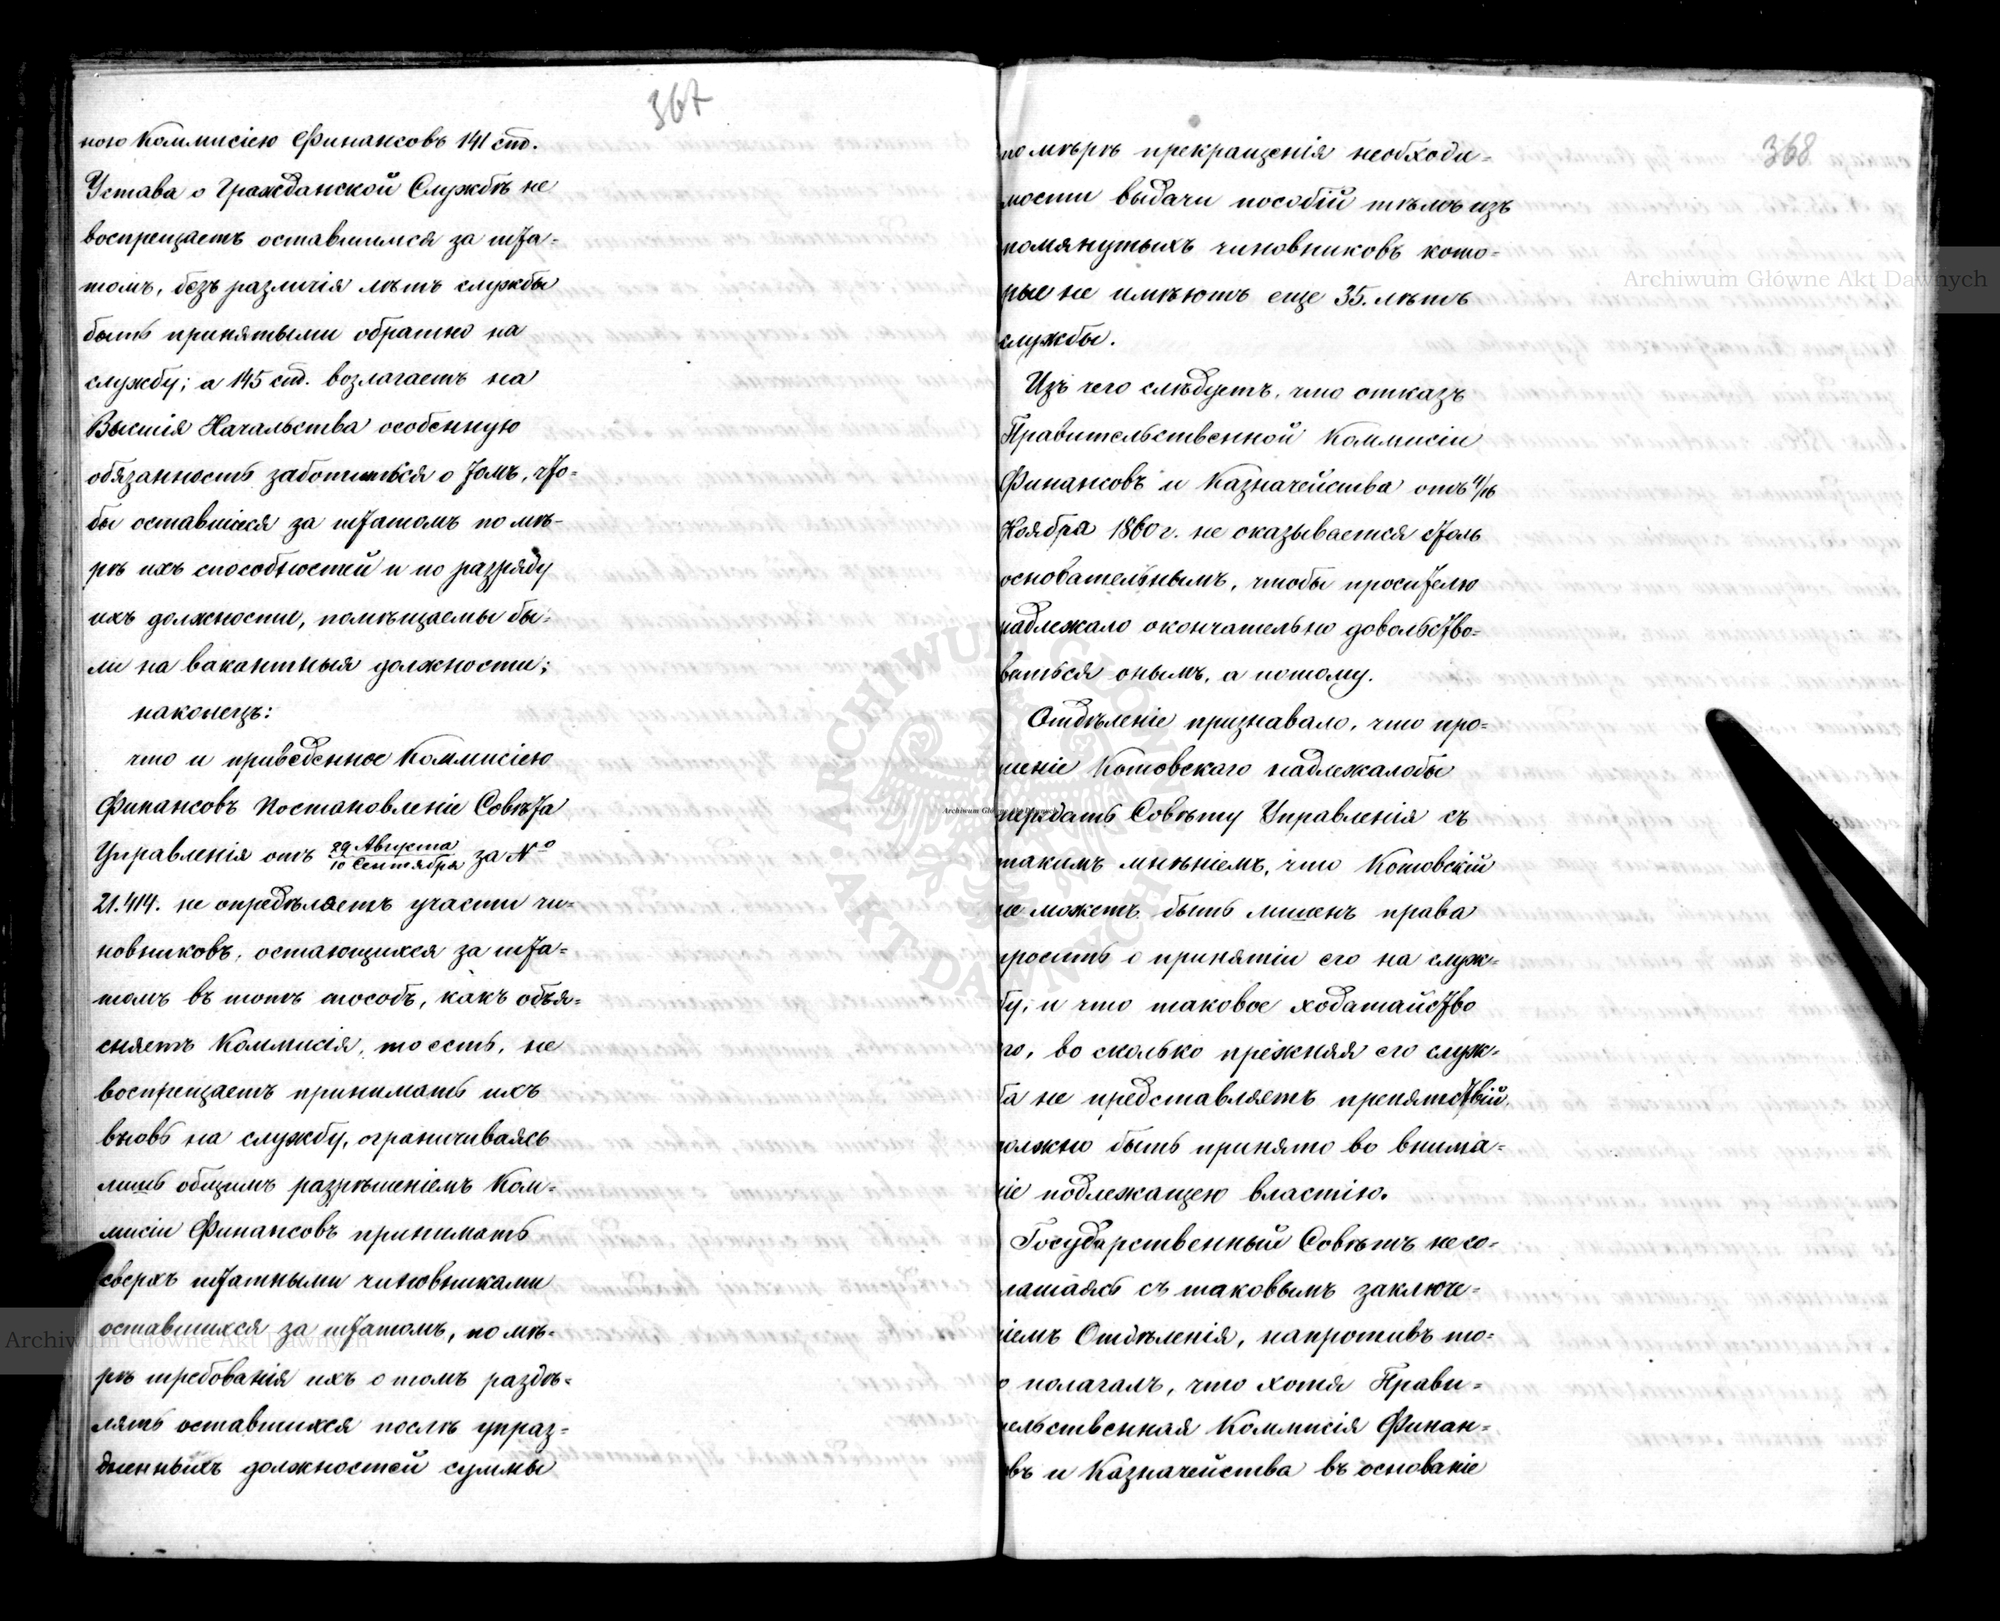 367
ною Коммисіею Финансовъ 141 ст.
Устава о Гражданской Службѣ не
воспрещаетъ оставшимся за шта-
томъ, безъ различія лѣтъ службы
быть принятыми обратно на
службу; а 145 ст. возлагаетъ на
Высшія Начальства особенную
обязанность заботиться о томъ, что-
бы оставшіеся за штатомъ по мѣ-
рѣ ихъ способностей и по разряду
ихъ должности, помѣщаемы бы-
ли на вакантныя должности;
наконецъ:
что и приведенное Коммисіею
Финансовъ Постановленіе Совѣта
Управленія отъ 29 Августа/10 Сентября за №
21.414. не опредѣляетъ участи чи-
новниковъ, остающихся за шта-
томъ въ тотъ способъ, какъ объя-
сняетъ Коммисія, то есть, не
воспрещаетъ принимать ихъ
вновь на службу, ограничиваясь
лишь общимъ разрѣшеніемъ Ком-
мисіи Финансовъ принимать
сверхъ штатными чиновниками
оставшихся за штатомъ, по мѣ-
рѣ требованія ихъ о томъ раздѣ-
лять оставшихся послѣ упраз-
дненныхъ должностей суммы
368
по мѣрѣ прекращенія необходи-
мости выдачи пособій тѣмъ изъ
помянутыхъ чиновниковъ кото-
рые не имѣютъ еще 35. лѣтъ
службы.
Изъ чего слѣдуетъ, что отказъ
Правительственной Коммисіи
Финансовъ и Казначейства отъ 4/16
Ноября 1860 г. не оказывается столь
основательнымъ, чтобы просителю
надлежало окончательно довольство-
ваться онымъ, а потому.
Отдѣленіе признавало, что про-
шеніе Котовскаго надлежало бы
передать Совѣту Управленія съ
такимъ мнѣніемъ, что Котовскій
не можетъ быть лишенъ права
просить о принятіи его на служ-
бу; и что таковое ходатайство
го, во сколько прежняя его служ-
ба не представляетъ препятствій,
должно быть принято во внима-
ніе подлежащею властію.
Государственный Совѣтъ не со-
лашаясь съ таковымъ заключе-
ніемъ Отдѣленія, напротивъ то-
о полагалъ, что хотя Прави-
тельственная Коммисія Финан-
въ и Казначейства въ основаніе
Archiwum Główne Akt Dawnych
Archiwum Główne Akt Dawnych
Archiwum Główne Akt Dawnych
ARCHIWUM GŁÓWNE AKT DAWNYCH